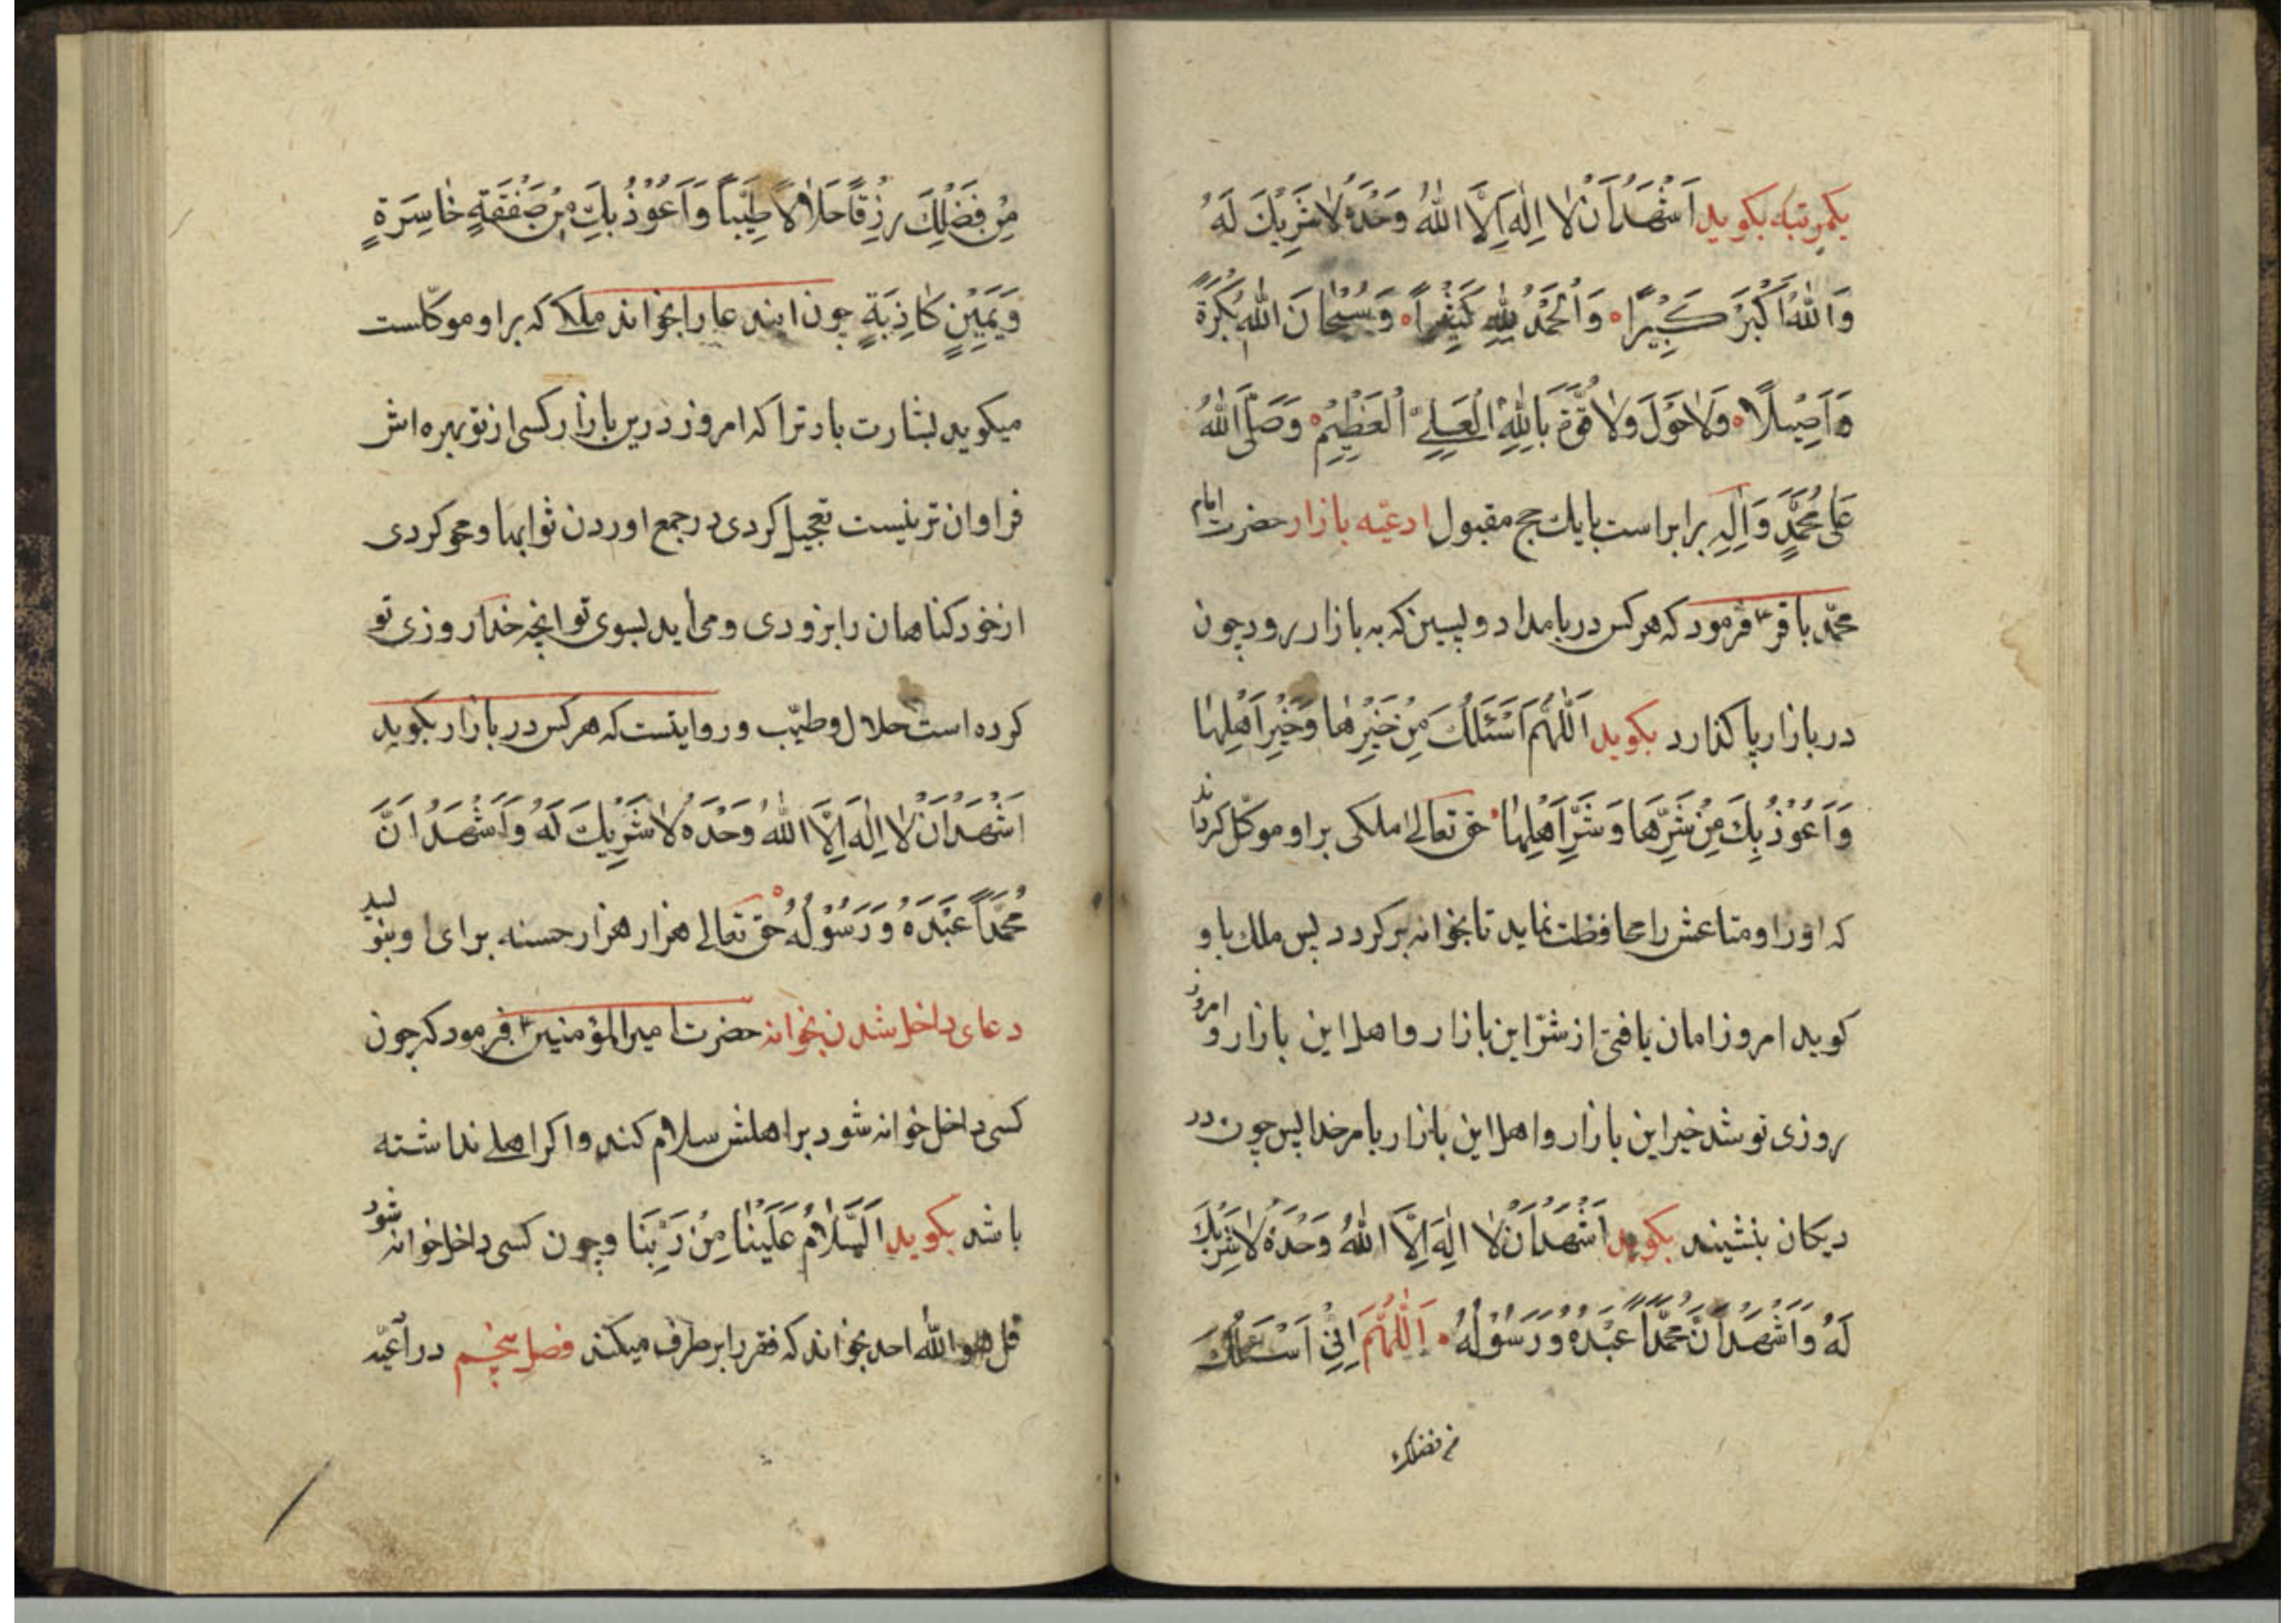 یکمرتبه بکوید اَشْهَدُ اَنْ لٰا اِلٰهَ اِلَّا اللّٰهُ وَحْدَهُ لٰا شَرِیْكَ لَهُ
وَاللّٰهُ اَكْبَرُ كَبِیْرًا وَالْحَمْدُ لِلّٰهِ كَثِیْراً وَسُبْحٰانَ اللّٰهِ بُكْرَةً
وَاَصِیْلًا وَلٰا حَوْلَ وَلٰا قُوَّةَ بِاللّٰهِ الْعَلِیِّ الْعَظِیْمِ وَصَلَّی اللّٰهُ
عَلٰی مُحَمَّدٍ وَاٰلِهِ برابر است با یك حج مقبول ادعیّه بازار حضرت امام
محمّد باقرؑ فرمود که هر کس در بامداد و پسین که به بازار رود چون
در بازار پا کذارد بکوید اَللّٰهُمَّ اَسْئَلُكَ مِنْ خَیْرِهٰا وَخَیْرِ اَهْلِهٰا
وَاَعُوْذُ بِكَ مِنْ شَرِّهٰا وَشَرِّ اَهْلِهٰا حق تعالی ملکی بر او موکّل کرداند
که او را و متاعش را محافظت نماید تا بخوانه برکردد پس ملك باو
کوید امروز امان یافتی از شرّ این بازار و اهل این بازار و امروز
روزی تو شد خیر این بازار و اهل این بازار بامر خدا پس چون در
دیکان بنشیند بکوید اَشْهَدُ اَنْ لٰا اِلٰهَ اِلَّا اللّٰهُ وَحْدَهُ لٰا شَرِیْكَ
لَهُ وَاَشْهَدُ اَنَّ مُحَمَّداً عَبْدُهُ وَرَسُوْلُهُ اَللّٰهُمَّ اِنِّیْ اَسْئَلُكَ
من فضلك
مِنْ فَضْلِكَ رِزْقاً حَلٰالًا طَیِّباً وَاَعُوْذُ بِكَ مِنْ صَفْقَةٍ خٰاسِرَةٍ
وَیَمِیْنٍ كٰاذِبَةٍ چون ایند عا را بخواند ملکے که بر او موکّلست
میکوید بشارت باد ترا که امروز در این بازار کسی از تو بهره اش
فراوان تر نیست تعجیل کردی در جمع اوردن ثوابها و محو کردی
از خود کناهان را بزودی و می اید بسوی تو انچه خدا روزی تو
کرده است حلال و طیّب و روایتست که هر کس در بازار بکوید
اَشْهَدُ اَنْ لٰا اِلٰهَ اِلَّا اللّٰهُ وَحْدَهُ لٰا شَرِیْكَ لَهُ وَاَشْهَدُ اَنَّ
مُحَمَّداً عَبْدُهُ وَرَسُوْلُهُ حق تعالی هزار هزار حسنه برای او بنویسد
دعای داخل شدن بخوانه حضرت امیر المؤمنینؑ فرمود که چون
کسی داخل خوانه شود بر اهلش سلام کند و اکر اهلے نداشته
باشد بکوید اَلسَّلٰامُ عَلَیْنٰا مِنْ رَبِّنَا و چون کسی داخل خوانه شود
قل هو اللّٰه احد بخواند که فقر را بر طرف میکند فصل پنجم در ادعیّه